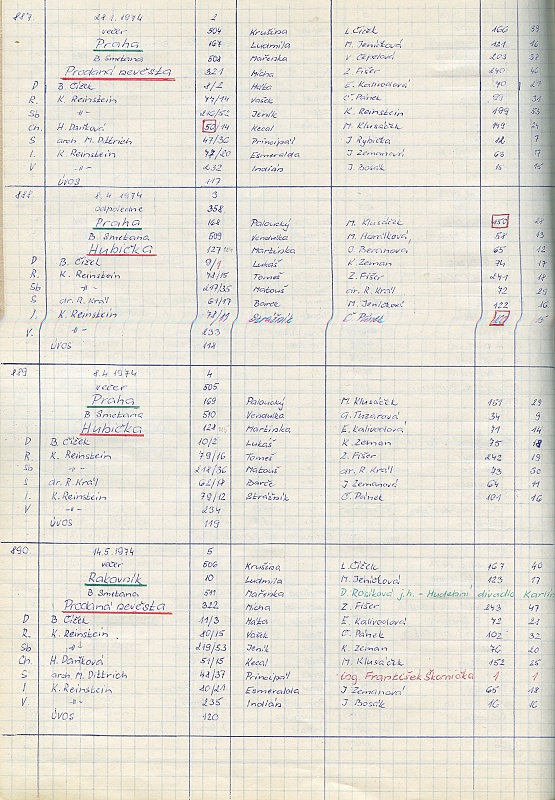 887 28.1.1974 2
večer 504 Krušina L. Čížek 166 39
Praha 167 Ludmila M. Jeničková 121 16
B. Smetana 508 Mařenka V. Čepelová 203 38
Prodaná nevěsta 321 Mícha Z. Fišer 240 46
D B. Čížek 8/2 Háta E. Kalivodová 70
R. K. Reinstein 77/14 Vašek Č. Pánek 99 31
Sb -"- 216/52 Jeník K. Reinstein 199 53
Ch. H. Daňková 50/14 Kecal M. Klusáček 149 24
S arch. M. Dittrich 47/36 Principál J. Rybička 12 7
I. K. Reinstein 77/20 Esmeralda J. Zemanová 63 17
V -"- 232 Indián J. Bosák 15 15
ÚVOS 117
888 8.4.1974 3
odpoledne 358
Praha 168 Paloucký M. Klusáček 150 28
B. Smetana 509 Vendulka M. Horálková 58 13
Hubička 127 Martinka J. Beranová 65 12
D B. Čížek 9/1 Lukáš K. Zeman 74 17
R. K. Reinstein 78/15 Tomeš Z. Fišer 241 18
Sb -"- 217/35 Matouš dr. R. Král 72 29
S dr. R. Král 61/17 Barče M. Jeničková 122 16
I. K. Reinstein 78/11 Strážník Č. Pánek 100 15
V. -"- 233
ÚVOS 118
889 8.4.1974 4
večer 505
Praha 169 Paloucký M. Klusáček 151 29
B. Smetana 510 Vendulka G. Tuzarová 34 9
Hubička 128 Martinka E. Kalivodová 71 14
D B. Čížek 10/2 Lukáš K. Zeman 75 18
R. K. Reinstein 79/16 Tomeš Z. Fišer 242 19
Sb -"- 218/36 Matouš dr. R. Král 73 30
S dr. R. Král 62/18 Barče J. Zemanová 64 11
I. K. Reinstein 79/12 Strážník Č. Pánek 101 16
V -"- 234
ÚVOS 119
890 14.5.1974 5
večer 506 Krušina L. Čížek 167 40
Rakovník 10 Ludmila M. Jeničková 123 17
B. Smetana 511 Mařenka D. Rosíková j.h. - Hudební divadlo Karlín
Prodaná nevěsta 322 Mícha Z. Fišer 243 47
D B. Čížek 11/3 Háta E. Kalivodová 72 21
R. K. Reinstein 80/15 Vašek Č. Pánek 102 32
Sb -"- 219/53 Jeník K. Zeman 76 20
Ch. H. Daňková 51/15 Kecal M. Klusáček 152 25
S arch. M. Dittrich 48/37 Principál ing. František Škornička 1 1
I K. Reinstein 80/21 Esmeralda J. Zemanová 65 18
V -"- 235 Indián J. Bosák 16 16
ÚVOS 120